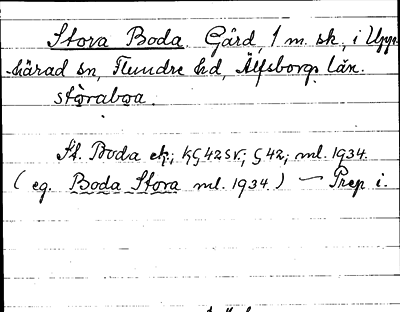 Stora Boda. Gård, 1 m. sk., i Upp-
härad sn, Flundre hd, Älfsborgs län.
störaboa.
St. Boda ek; KG42SV; G42; ml. 1934.
(eg. Boda Stora ml. 1934.) — Prep i.